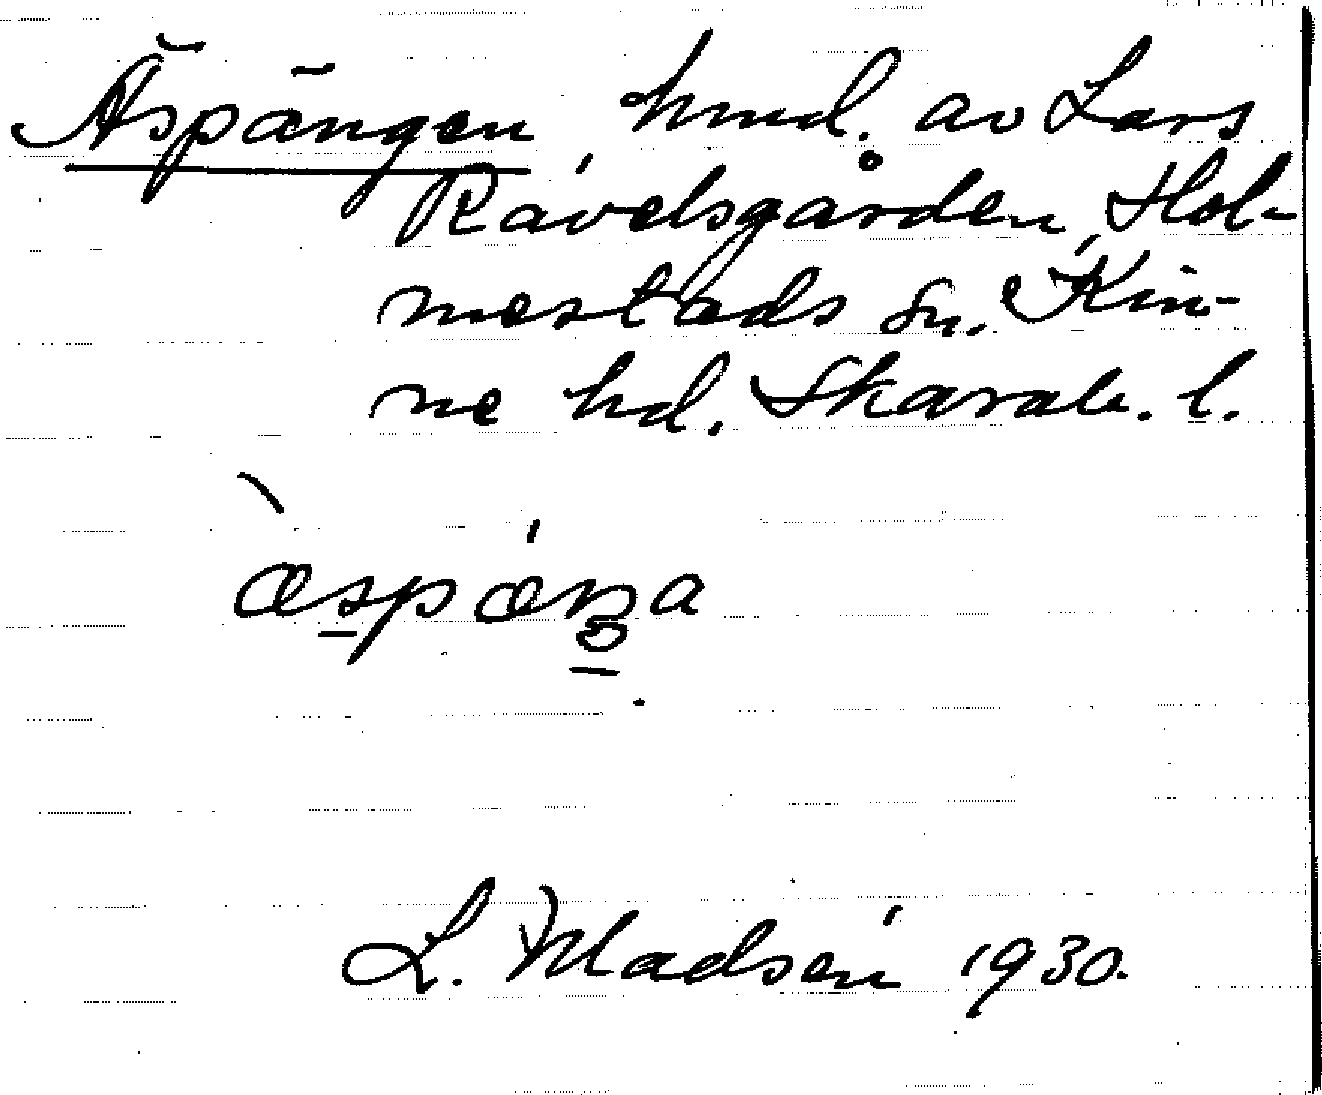 Äspängen, hmd. av Lars
Rávelsgården, Hol-
mestads sn, Kin-
ne hd, Skarab. l.
æspæŋa
L. Madsén 1930.